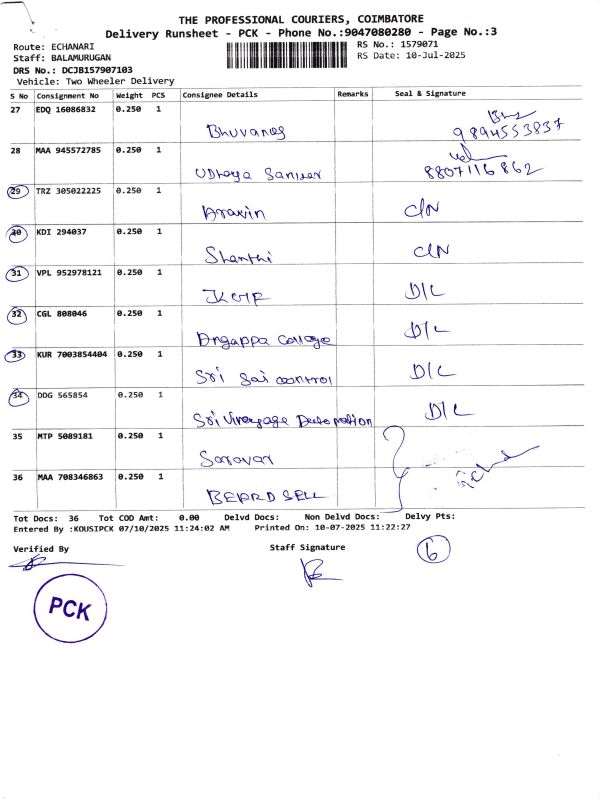 THE PROFESSIONAL COURIERS, COIMBATORE
Delivery Runsheet - PCK - Phone No.:9047080280 - Page No.:3
Route: ECHANARI RS No.: 1579071
Staff: BALAMURUGAN RS Date: 10-Jul-2025
DRS No.: DCJB157907103
Vehicle: Two Wheeler Delivery
S No Consignment No Weight PCS Consignee Details Remarks Seal & Signature
27 EDQ 16086832 0.250 1
Bhuvanes 9894553837
28 MAA 945572785 0.250 1
UDhaya 8807116862
29 TRZ 305022225 0.250 1
Aravin C/N
30 KDI 294037 0.250 1
Shanthi C/N
31 VPL 952978121 0.250 1
D/L
32 CGL 808046 0.250 1
Angappa College D/L
33 KUR 7003854404 0.250 1
Sri Sai control D/L
34 DDG 565854 0.250 1
Sri D/L
35 MTP 5089181 0.250 1
Saravar
36 MAA 708346863 0.250 1
Tot Docs: 36 Tot COD Amt: 0.00 Delvd Docs: Non Delvd Docs: Delvy Pts:
Entered By :KOUSIPCK 07/10/2025 11:24:02 AM Printed On: 10-07-2025 11:22:27
Verified By Staff Signature 6
PCK